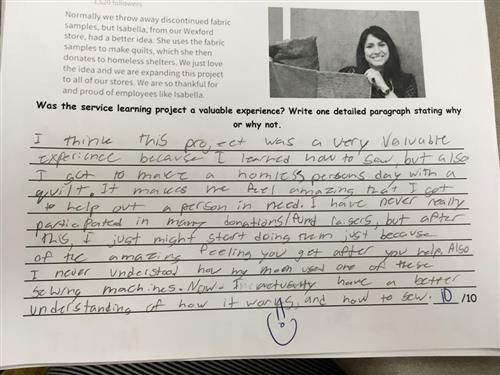 1,520 followers
Normally we throw away discontinued fabric
samples, but Isabella, from our Wexford
store, had a better idea. She uses the fabric
samples to make quilts, which she then
donates to homeless shelters. We just love
the idea and we are expanding this project
to all of our stores. We are so thankful for
and proud of employees like Isabella.
Was the service learning project a valuable experience? Write one detailed paragraph stating why
or why not.
I think this project was a very valuable
experience because I learned how to sew, but also
I got to make a homless persons day with a
quilt. It makes me feel amazing that I got
to help out a person in need. I have never really
participated in many donations/fund raisers, but after
this, I just might start doing them just because
of the amazing feeling you get after you help. Also
I never understood how my mom used one of these
sewing machines. Now I actually have a better
understanding of how it works, and how to sew. 10 /10